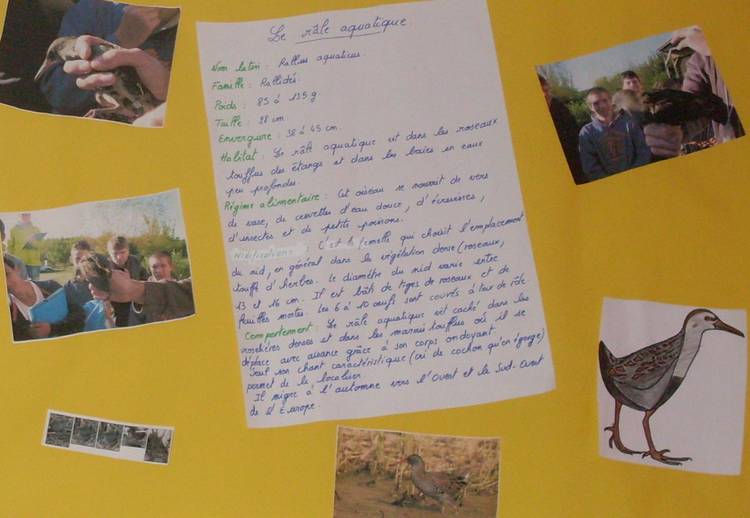 Le râle aquatique
Nom latin : Rallus aquaticus.
Famille : Rallidés.
Poids : 85 à 135 g.
Taille : 28 cm.
Envergure : 38 à 45 cm.
Habitat : Le râle aquatique vit dans les roseaux
touffus des étangs et dans les baies en eaux
peu profondes.
Régime alimentaire : Cet oiseau se nourrit de vers
de vase, de crevettes d'eau douce, d'écrevisses,
d'insectes et de petits poissons.
Nidification : C'est la femelle qui choisit l'emplacement
du nid, en général dans la végétation dense (roseaux,
touffe d'herbes). Le diamètre du nid varie entre
13 et 16 cm. Il est bâti de tiges de roseaux et de
feuilles mortes. Les 6 à 10 œufs sont couvés à tour de rôle
Comportement : Le râle aquatique vit caché dans les
roselières denses et dans les marais touffus où il se
déplace avec aisance grâce à son corps ondoyant.
Seul son chant caractéristique (cri de cochon qu'on égorge)
permet de le localiser.
Il migre à l'automne vers l'Ouest et le Sud-Ouest
de l'Europe.